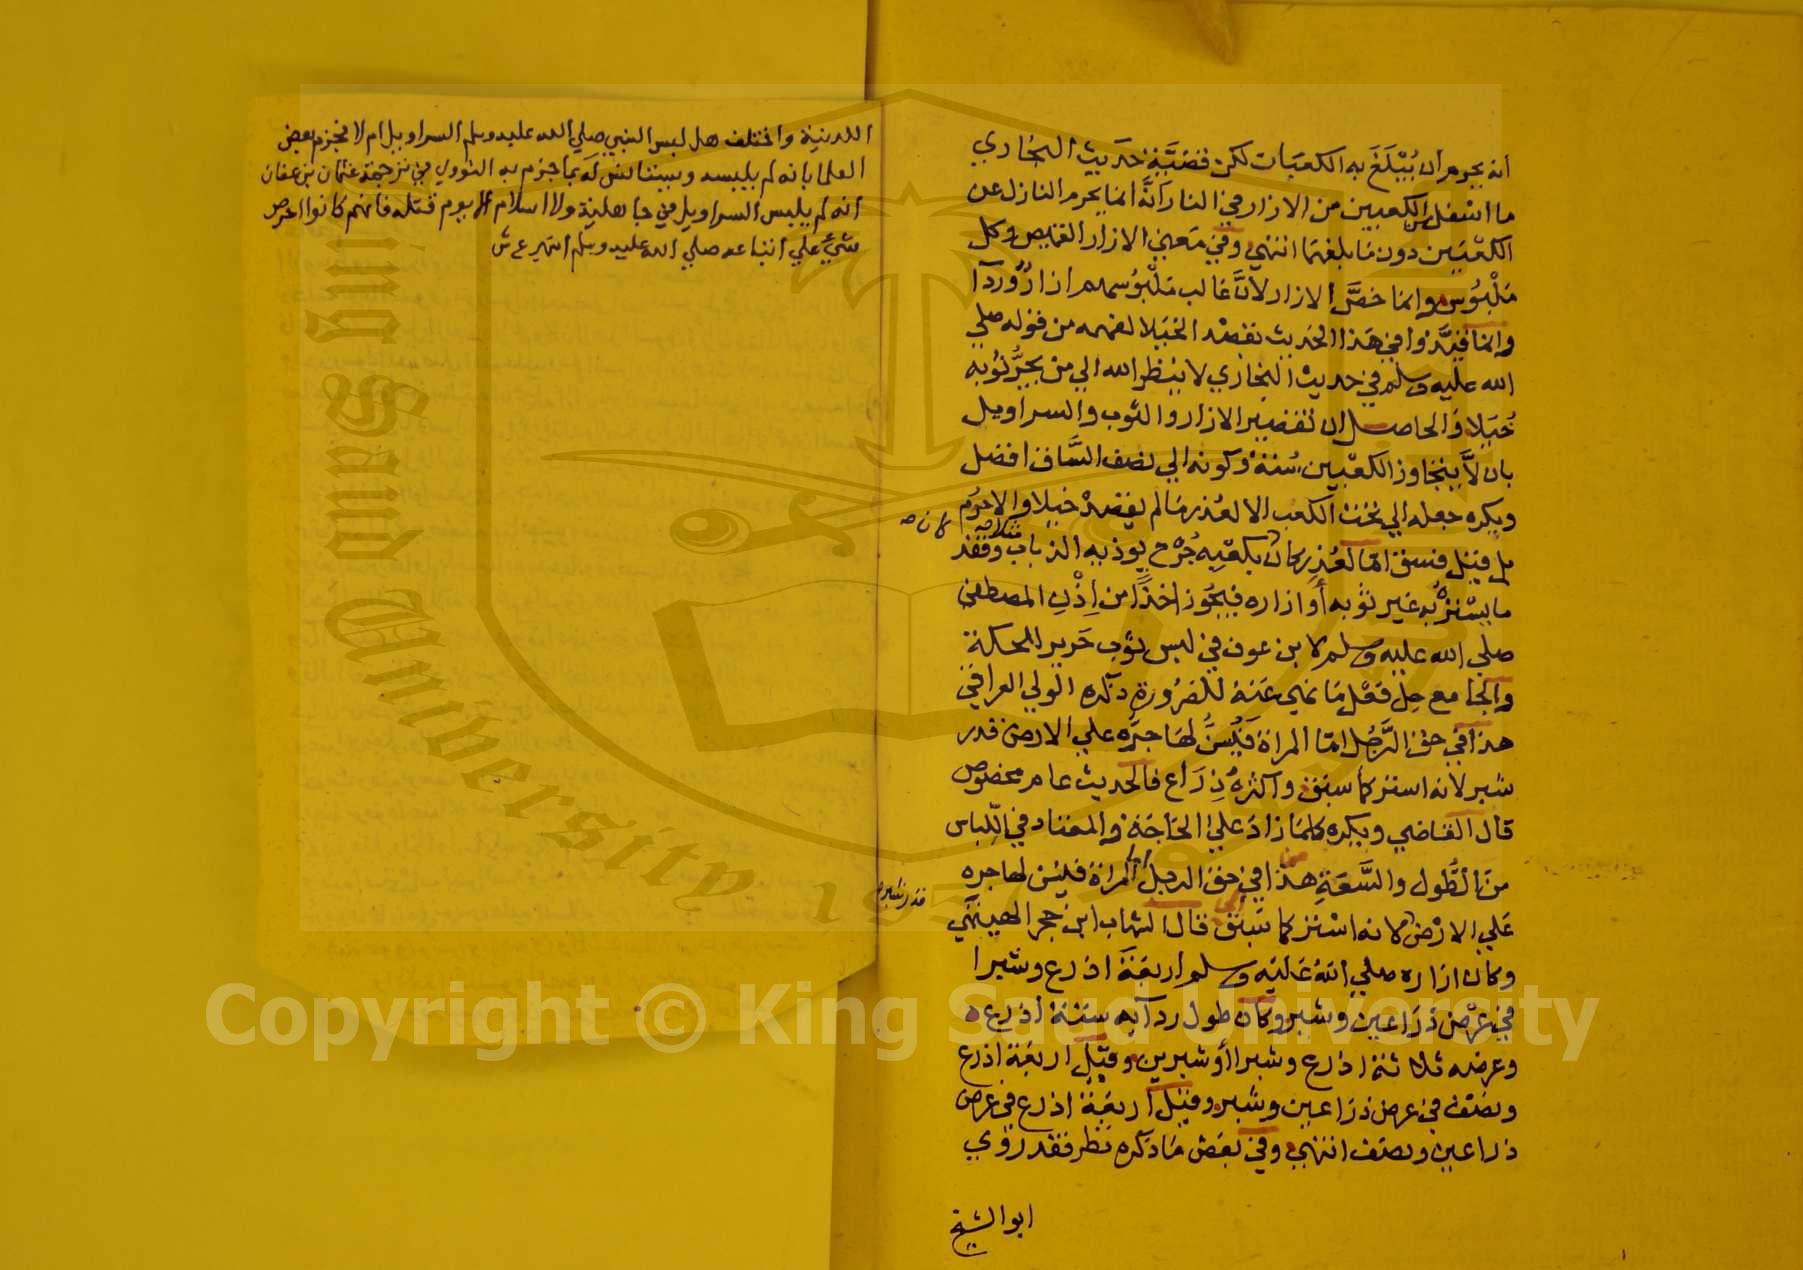 انه يحرم ان يبلغ به الكعبان لكن قضية حديث البخاري
ما اسفل من الكعبين من الازار في النار انه انما يحرم النازل عن
الكعبين دون ما بلغهما انتهي وفي معني الازار القميص وكل
ملبوس وانما خص الازار لانه غالب ملبوسهم اذ ورد
وانما قيدوا في هذا الحديث بقصد الخيلا لفهمه من قوله صلي
الله عليه وسلم في حديث البخاري لا ينظر الله الي من يجر ثوبه
خيلا والحاصل ان تقصير الازار والثوب والسراويل
بان لا يتجاوز الكعبين سنة وكونه الي نصف الساق افضل
ويكره جعله الي تحت الكعب الا لعذر ما لم يقصد خيلا والا حرم
بل قيل فسق اما لعذر كان بكعبيه جرح يوذيه الذباب وفقد
ما يستتر به غير ثوبه او ازاره فيجوز اخذا من اذن المصطفي
صلي الله عليه وسلم لابن عوف في لبس ثوب حرير للحكة
والجامع حل فعل ما نهي عنه للضرورة ذكره الولي العراقي
هذا في حق الرجل اما المراة فيسن لها جره علي الارض قدر
شبر لانه استر كما سبق واكثره ذراع فالحديث عام مخصوص
قال القاضي ويكره كلما زاد علي الحاجة والمعتاد في اللباس
من الطول والسعة هذا في حق الرجل اما المراة فليس لها جره
علي الارض لانه استر كما سبق قال الشهاب ابن حجر الهيتمي
وكان ازاره صلي الله عليه وسلم اربعة اذرع وشبرا
في عرض ذراعين وشبر وكان طول ردايه ستة اذرع
وعرضه ثلاثة اذرع وشبرا او شبرين وقيل اربعة اذرع
ونصف في عرض ذراعين وشبر وقيل اربعة اذرع في عرض
ذراعين ونصف انتهي وفي بعض ما ذكره نظر فقد روي
ابو الشيخ
كان
قدر شبر
واختلف هل لبس النبي صلي الله عليه وسلم السراويل ام لا فجزم بعض
العلما بانه لم يلبسه ويستانس له بما جزم به النووي في ترجمة عثمان بن عفان
انه لم يلبس السراويل في جاهلية ولا اسلام الا يوم قتله فانهم كانوا احرص
شيء علي اتباعه صلي الله عليه وسلم انتهي ع ش
King Saud University 1957
Copyright © King Saud University